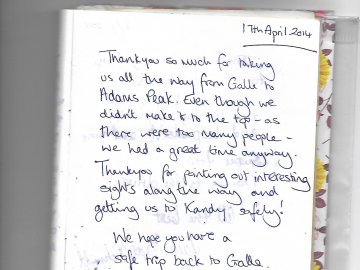 17th April 2014
Thankyou so much for taking
us all the way from Galle to
Adams Peak. Even though we
didn't make it to the top - as
there were too many people -
we had a great time anyway.
Thankyou for pointing out interesting
sights along the way and
getting us to Kandy safely!
We hope you have a
safe trip back to Galle.